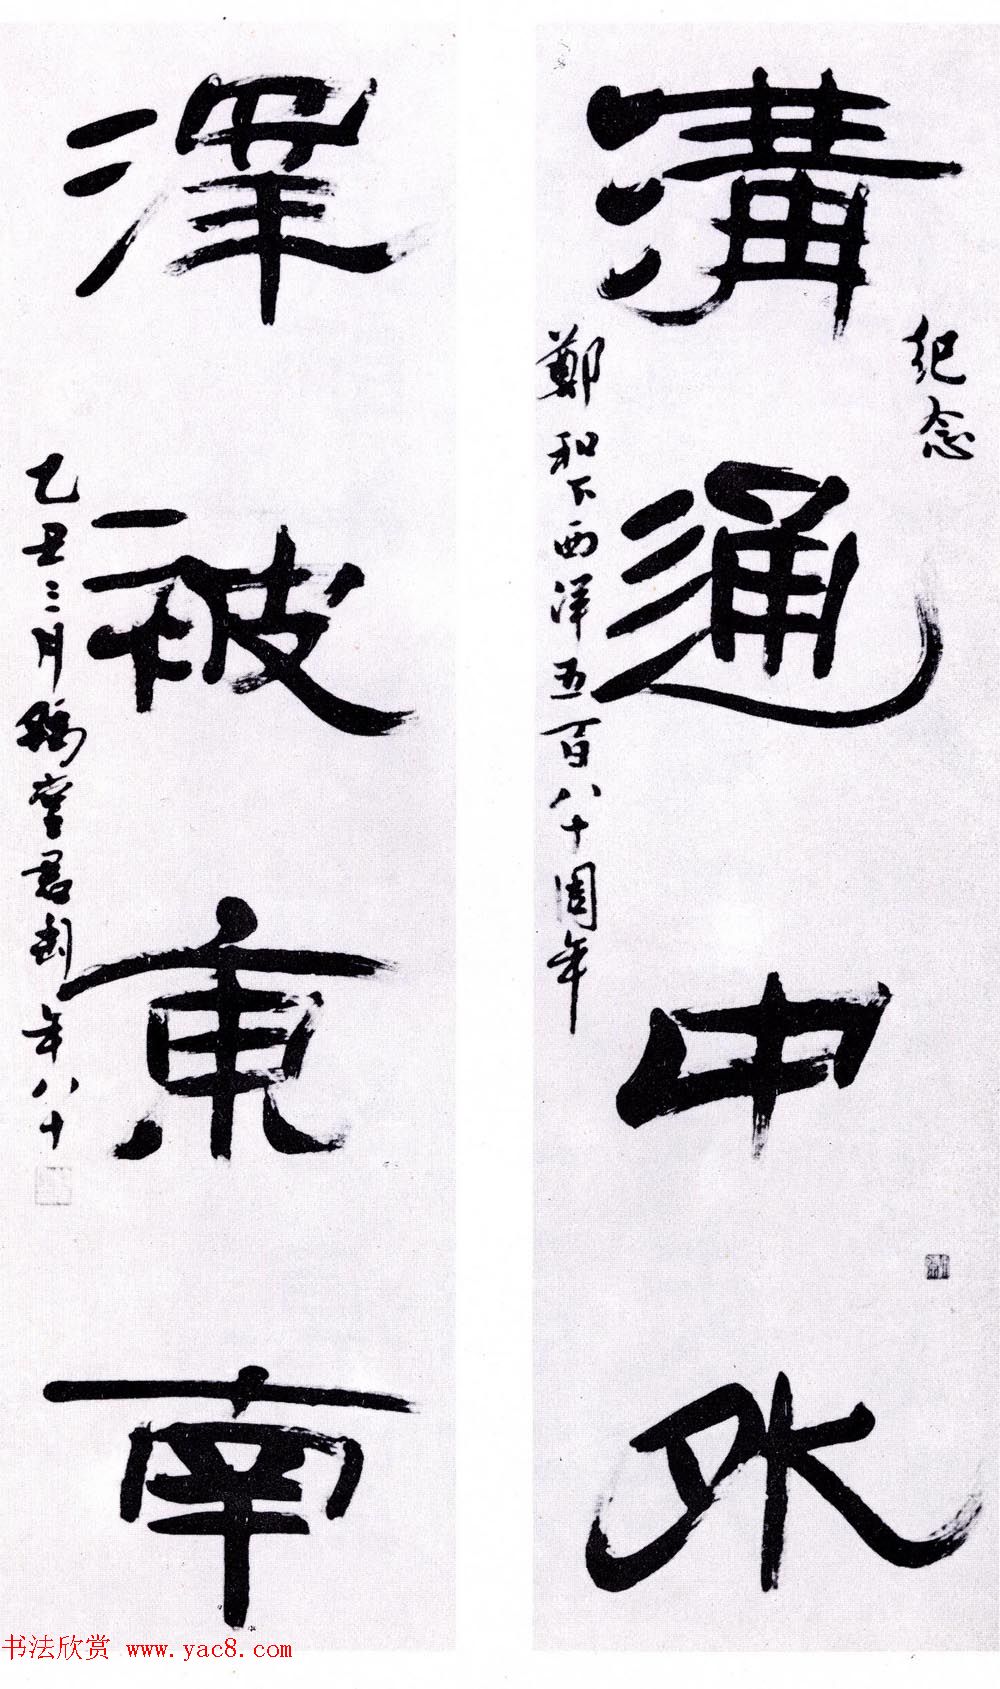 溝通中外
紀念
鄭和下西洋五百八十周年
澤被東南
乙丑三月鷂堂君匋年八十
书法欣赏 www.yac8.com